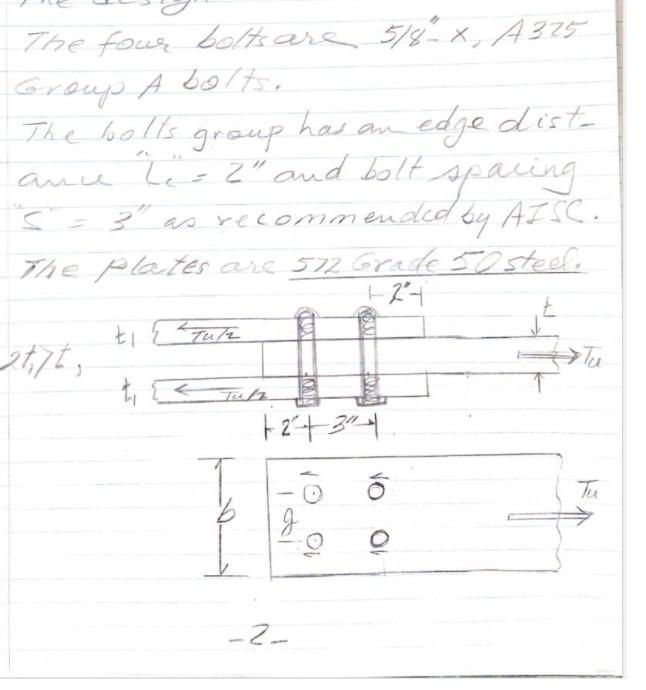 The design
The four bolts are 5/8"-x, A325
Group A bolts.
The bolts group has an edge dist-
ance "Le" = 2" and bolt spacing
"S" = 3" as recommended by AISC.
The plates are 572 Grade 50 steel.
2"
t1 Tu/2 t
2t1>t, Tu
t1 Tu/2
2" 3"
b g Tu
-2-